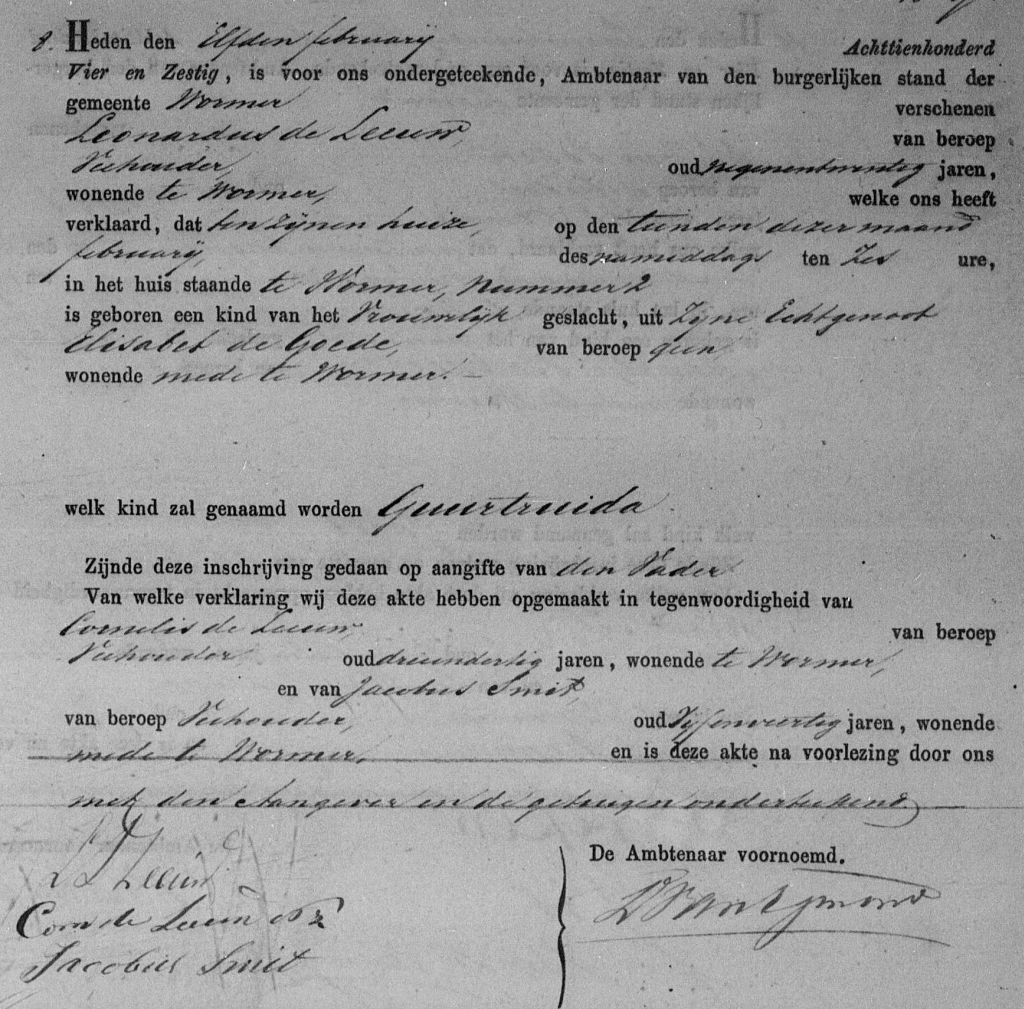 8. Heden den Elfden february Achttienhonderd
Vier en Zestig, is voor ons ondergeteekende, Ambtenaar van den burgerlijken stand der
gemeente Wormer verschenen
Leonardus de Leeuw, van beroep
Veehouder, oud negenentwintig jaren,
wonende te Wormer, welke ons heeft
verklaard, dat ten zijnen huize, op den tienden dezer maand
february, des namiddags ten Zes ure,
in het huis staande te Wormer, nummer 2
is geboren een kind van het Vrouwelijk geslacht, uit Zyne Echtgenoot
Elisabet de Goede, van beroep geen
wonende mede te Wormer. —
welk kind zal genaamd worden Guurtruida
Zijnde deze inschrijving gedaan op aangifte van den Vader
Van welke verklaring wij deze akte hebben opgemaakt in tegenwoordigheid van
Cornelis de Leeuw, van beroep
Veehouder oud drieendertig jaren, wonende te Wormer,
en van Jacobus Smit,
van beroep Veehouder, oud Vijfenveertig jaren, wonende
mede te Wormer, en is deze akte na voorlezing door ons
met den Aangever en de getuigen onderteekend
L d Leeuw
De Ambtenaar voornoemd.
Corn de Leeuw
Jacobus Smit